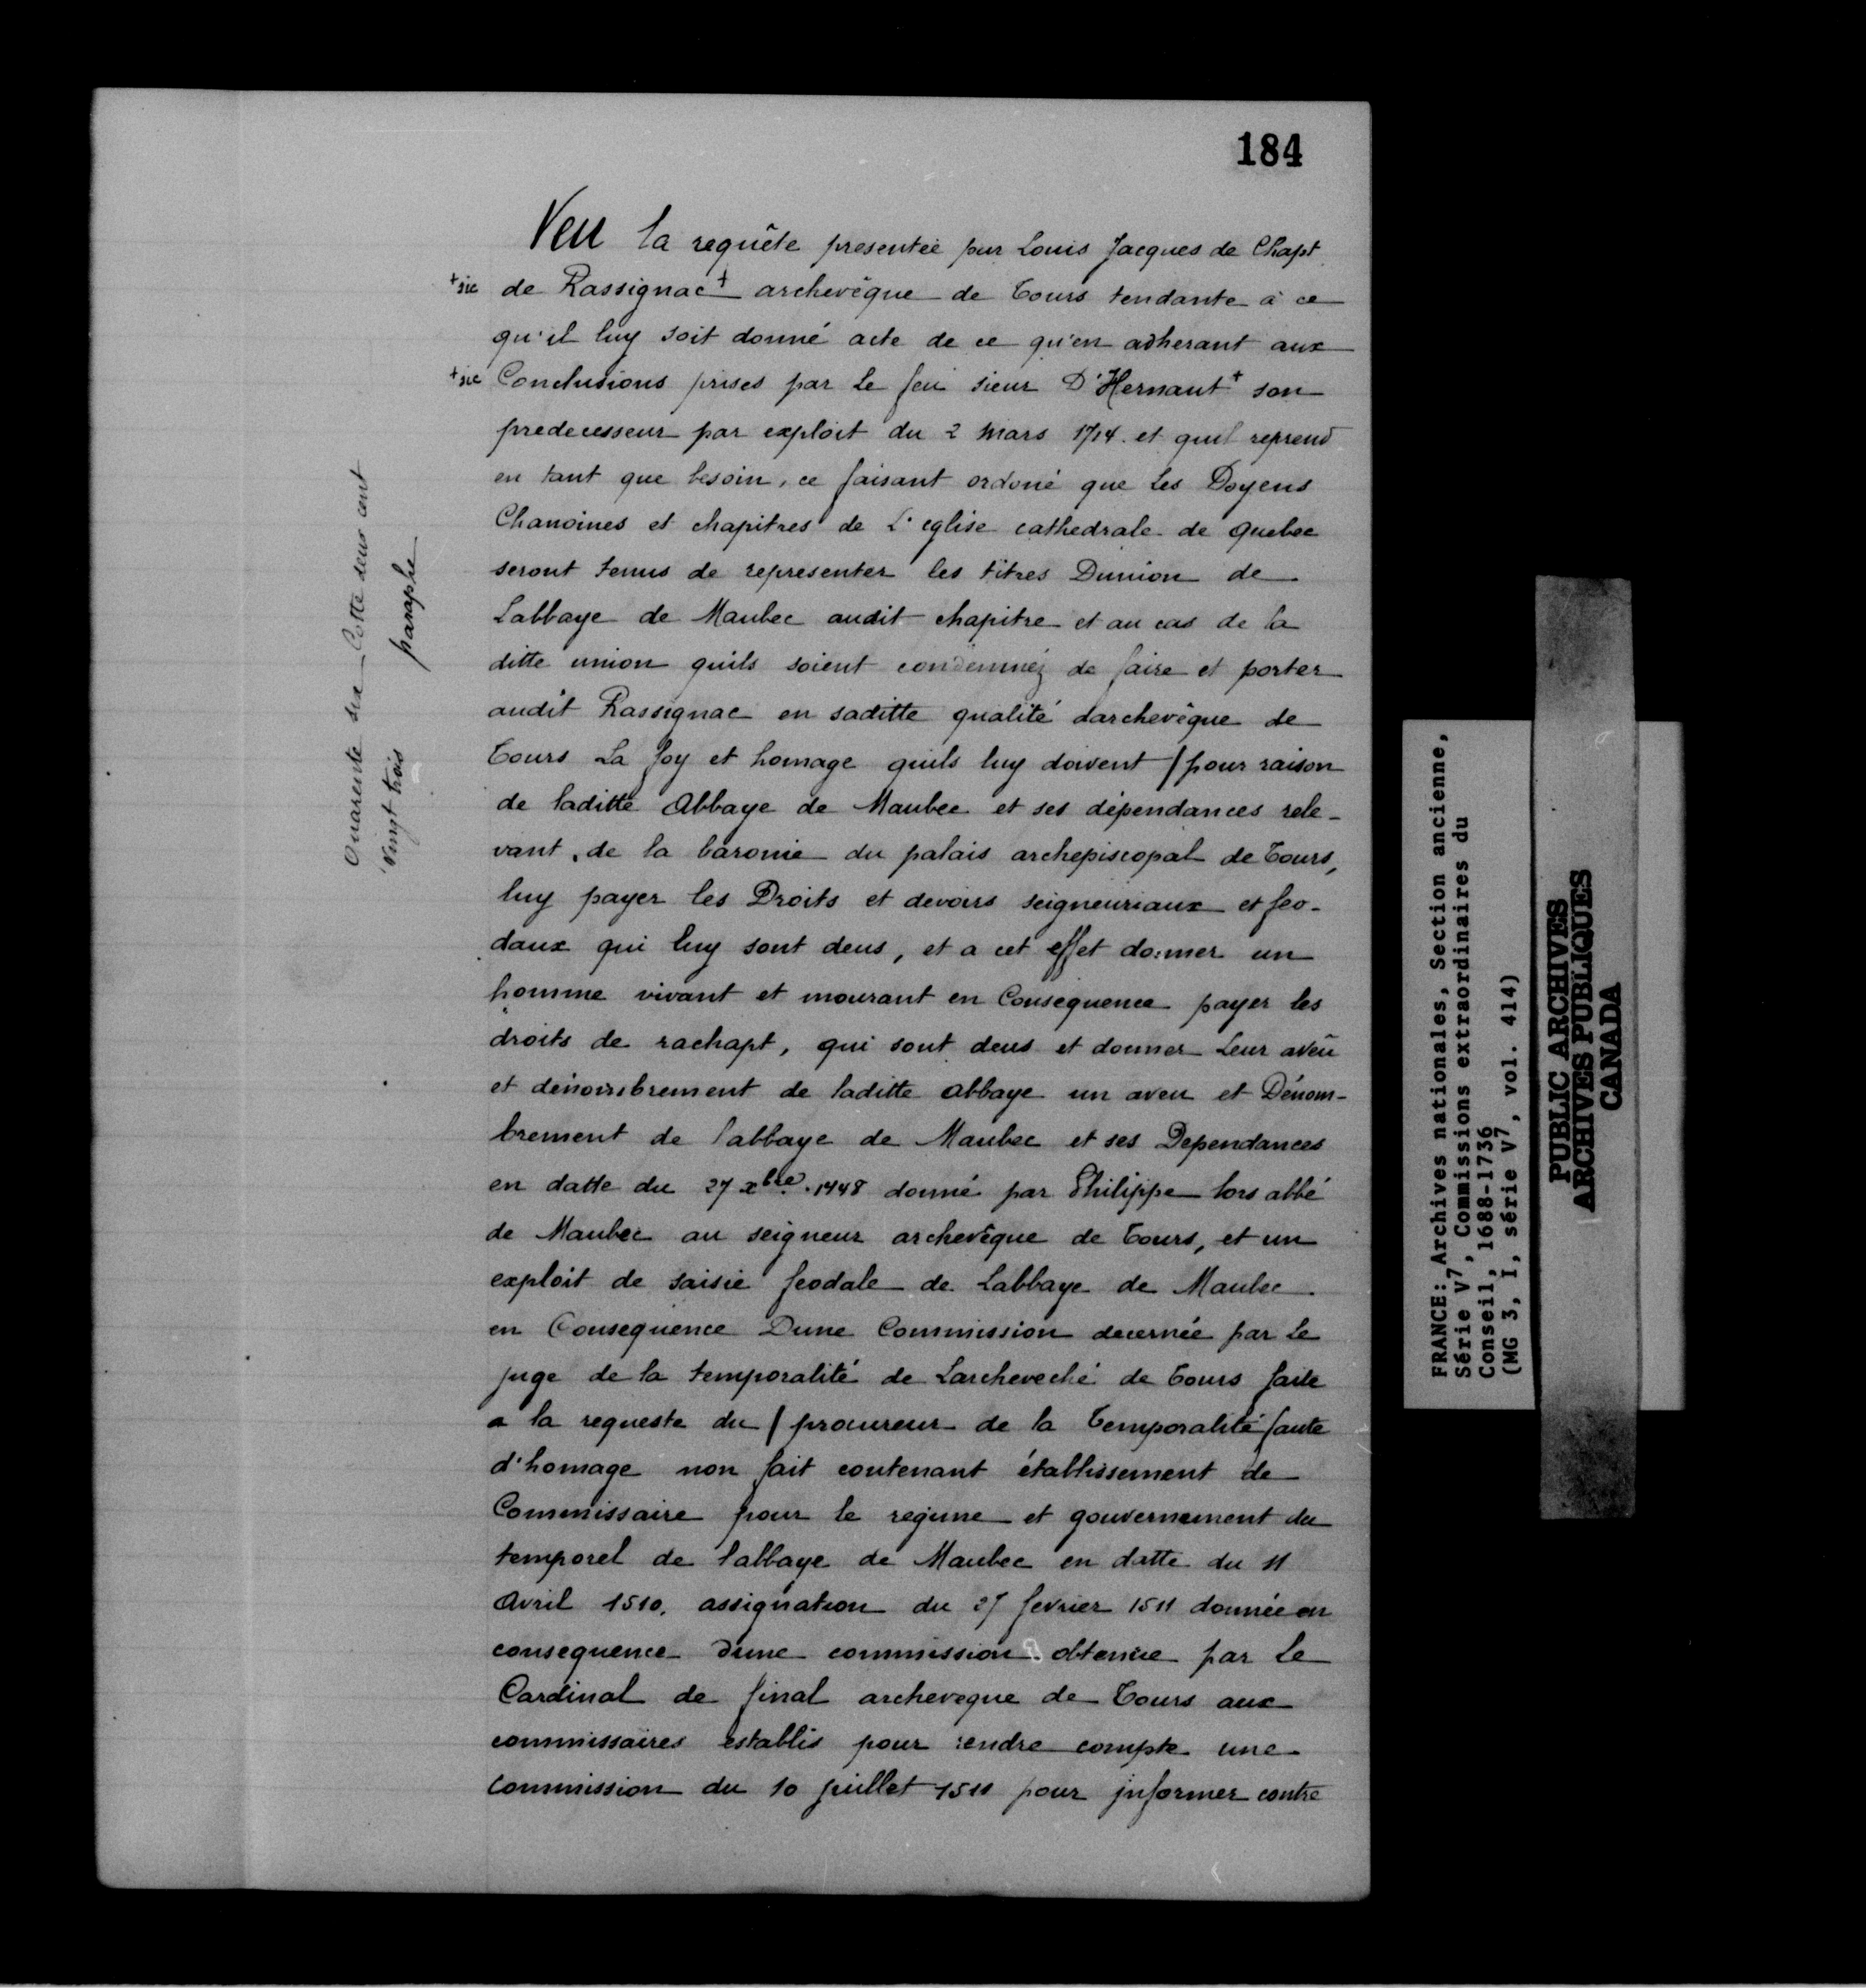 184
Veu la requête presentée par Louis Jacques de Chapt
+sic de Rassignac+ archevêque de Tours tendante à ce
qu'il luy soit donné acte de ce qu'en adherant aux
+sic Conclusions prises par le feu sieur D'Hernaut+ son
predecesseur par exploit du 2 mars 1714. et quil reprend
en tant que besoin, ce faisant ordoné que les Doyens
Chanoines et chapitres de L'eglise cathedrale de Quebec
seront tenus de representer les titres Dunion de
Labbaye de Maubec audit chapitre et au cas de la
ditte union quils soient condemnéz de faire et porter
audit Rassignac en saditte qualité darchevêque de
Tours La foy et homage quils luy doivent / pour raison
de laditte Abbaye de Maubec et ses dépendances rele-
vant, de la baronie du palais archepiscopal de Tours,
luy payer les Droits et devoirs seigneuriaux et feo-
daux qui luy sont deus, et a cet effet donner un
homme vivant et mourant en Consequence payer les
droits de rachapt, qui sont deus et donner Leur aveü
et dénombrement de laditte abbaye un aveu et Dénom-
brement de l'abbaye de Maubec et ses Dependances
en datte du 27 xbre. 1448 donné par Philippe lors abbé
de Maubec au seigneur archevêque de Tours, et un
exploit de saisie feodale de Labbaye de Maubec.
en Consequence Dune Commission decernée par Le
juge de la temporalité de Larcheveché de Tours faite
a la requeste du / procureur de la Temporalité faute
d'homage non fait contenant établissement de
Commissaire pour le regime et gouvernement du
temporel de l'abbaye de Maubec en datte du 11
Avril 1510. assignation du 27 fevrier 1511 donnée en
consequence dune commission obtenüe par Le
Cardinal de final archeveque de Tours aux
commissaires establis pour rendre compte une
Commission du 10 juillet 1511 pour jnformer contre
Quarente six Cotte deux cent
vingt trois paraphe
FRANCE: Archives nationales, Section ancienne,
Série V7, Commissions extraordinaires du
Conseil, 1688-1736
(MG 3, I, série V7, vol. 414)
PUBLIC ARCHIVES
ARCHIVES PUBLIQUES
CANADA